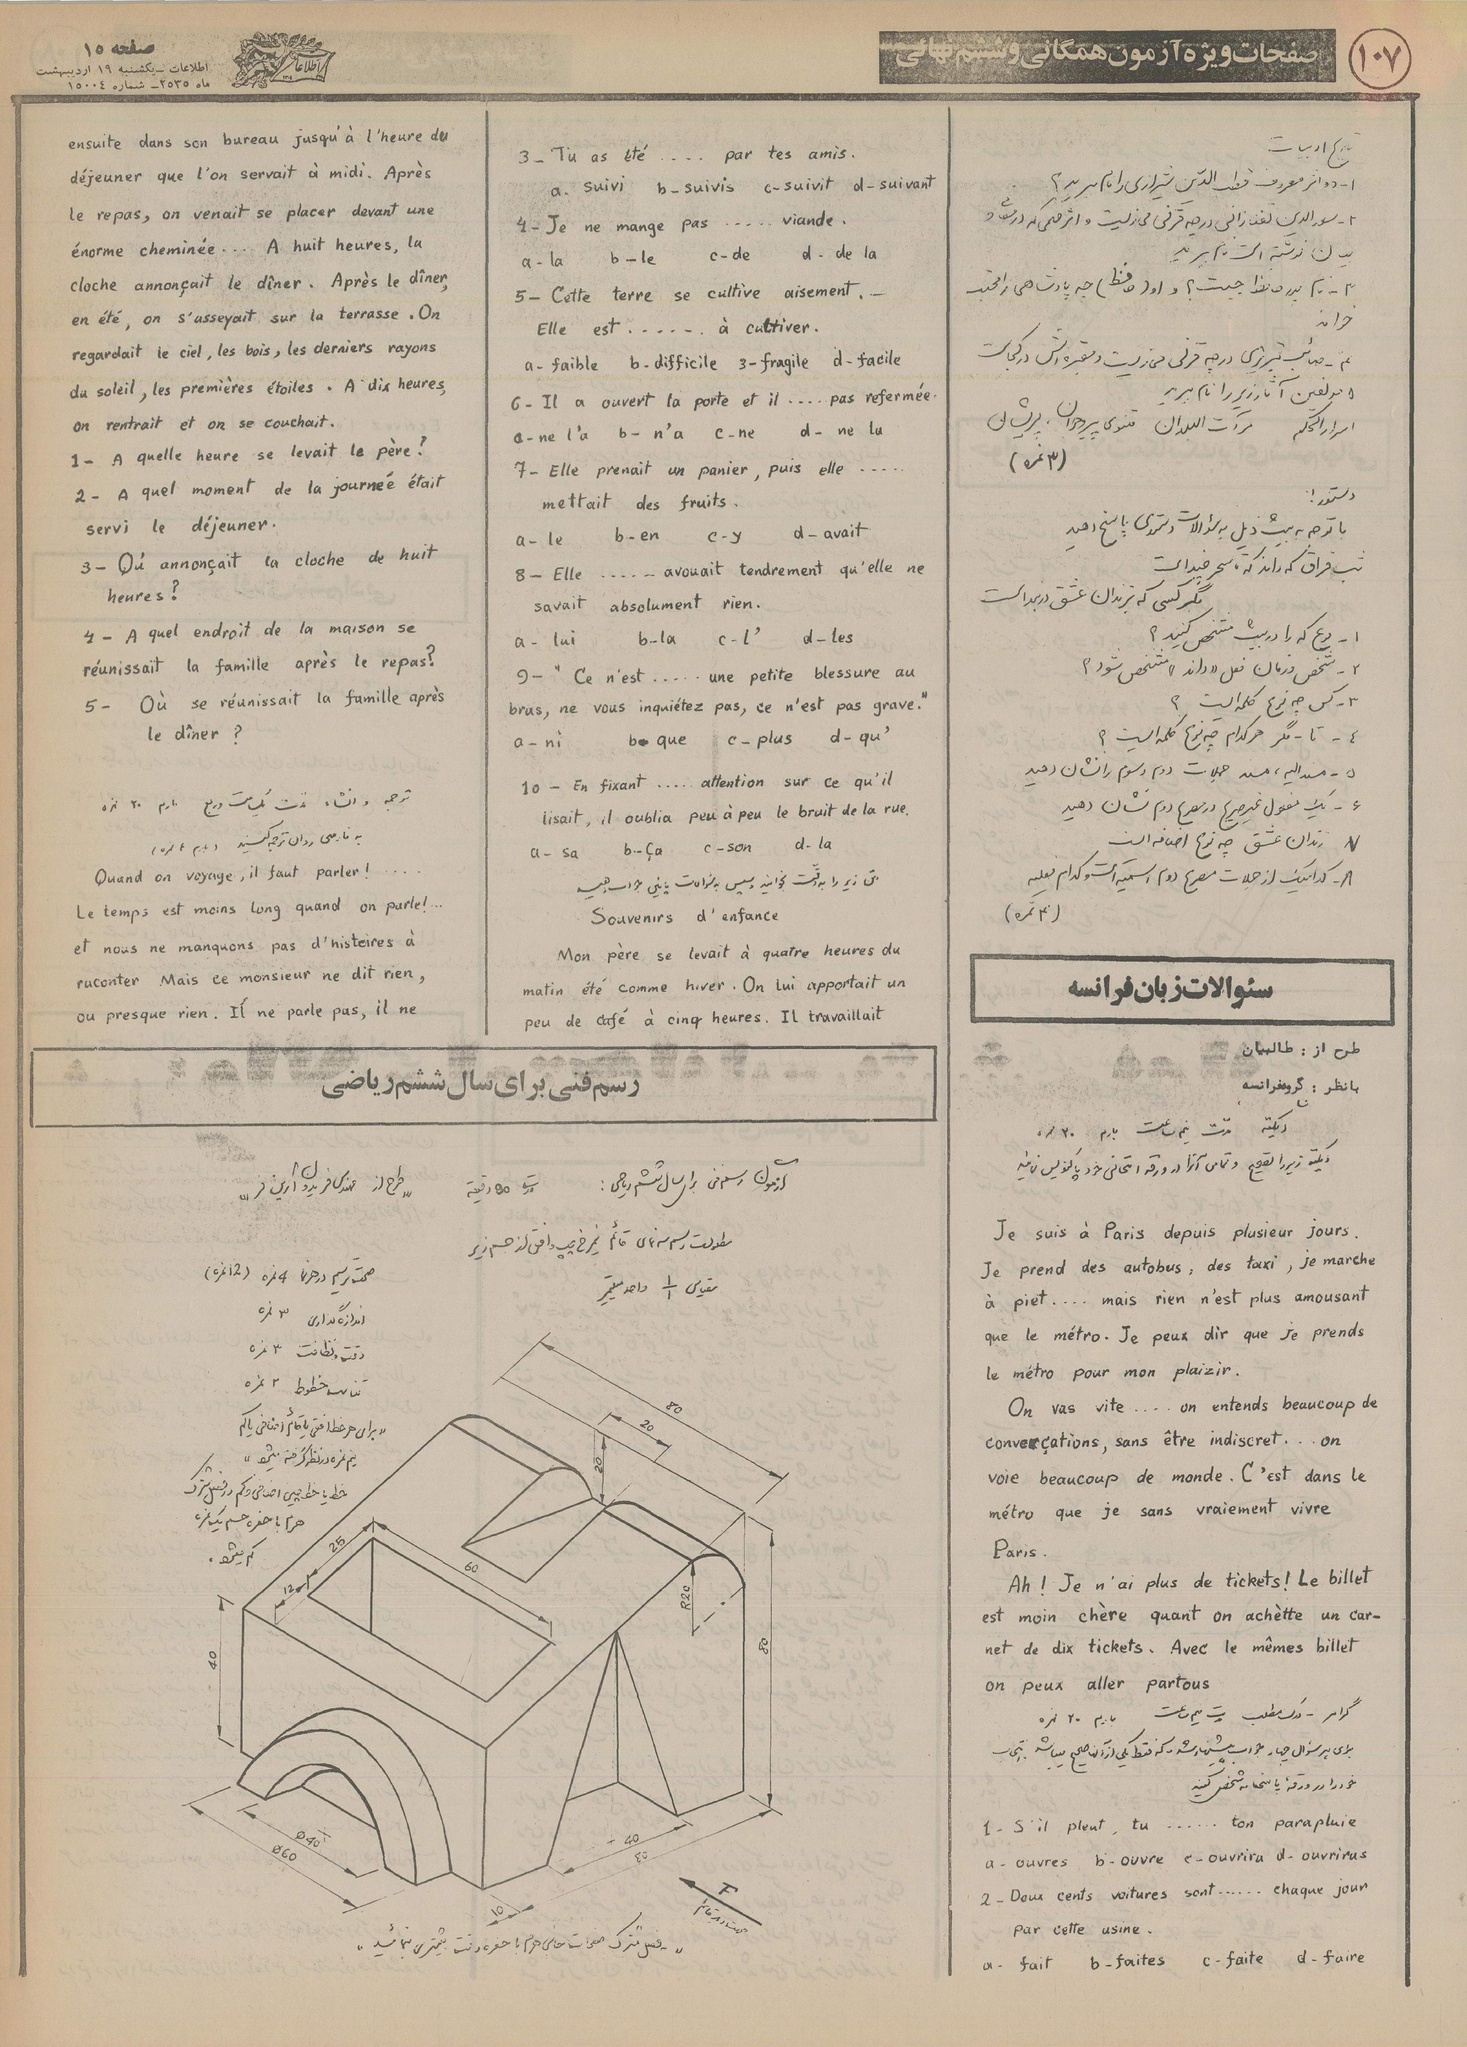 ۱۰۷
صفحات ویژه آزمون همگانی و ششم نهائی
اطلاعات
صفحه ۱۵
اطلاعات - یکشنبه ۱۹ اردیبهشت
ماه ۲۵۳۵ - شماره ۱۵۰۰۴
تاریخ ادبیات
۱- دو اثر معروف قطب الدین شیرازی را نام ببرید؟
بیان نوشته است نام ببرید
خواند
۵ مولفین آثار زیر را نام ببرید
اسرارالحکم مرآت البلدان مثنوی پیر و جوان، پریشان
(۳ نمره)
دستور:
با توجه به بیت ذیل به سئوالات دستوری پاسخ دهید
شب فراق که داند که تا سحر چند است
مگر کسی که بزندان عشق دربند است
۱- نوع که را در بیت مشخص کنید؟
۲- شخص و زمان فعل «داند» مشخص شود؟
۳- کس چه نوع کلمه است ؟
۴- تا - مگر هرکدام چه نوع کلمه است ؟
۵- مسندالیه، مسند جملات دوم و سوم را نشان دهید
۶- یک مفعول غیرصریح در مصرع دوم نشان دهید
۷ زندان عشق چه نوع اضافه است
۸- کدامیک از جملات مصرع دوم اسمیه است و کدام فعلیه
(۴ نمره)
سئوالات زبان فرانسه
طرح از : طالبیان
بانظر : گروه فرانسه
دیکته مدت نیم ساعت بارم ۲۰ نمره
Je suis à Paris depuis plusieur jours.
Je prend des autobus, des taxi, je marche
à piet.... mais rien n'est plus amousant
que le métro. Je peux dir que je prends
le métro pour mon plaizir.
On vas vite .... on entends beaucoup de
converçations, sans être indiscret... on
voie beaucoup de monde. C'est dans le
métro que je sans vraiement vivre
Paris.
Ah! Je n'ai plus de tickets! Le billet
est moin chère quant on achètte un car-
net de dix tickets. Avec le mêmes billet
on peux aller partous
گرامر - درک مطلب مدت نیم ساعت بارم ۲۰ نمره
خود را در ورقه پاسخنامه مشخص کنید
1- S'il pleut, tu ...... ton parapluie
a- ouvres b- ouvre c- ouvrira d- ouvriras
2- Deux cents voitures sont...... chaque jour
par cette usine.
a- fait b- faites c- faite d- faire
3- Tu as été .... par tes amis.
a. suivi b- suivis c- suivit d- suivant
4- Je ne mange pas ..... viande.
a- la b- le c- de d- de la
5- Cette terre se cultive aisement. -
Elle est ...... à cultiver.
a- faible b- difficile 3- fragile d- facile
6- Il a ouvert la porte et il .... pas refermée.
a- ne l'a b- n'a c- ne d- ne la
7- Elle prenait un panier, puis elle .....
mettait des fruits.
a- le b- en c- y d- avait
8- Elle ...... avouait tendrement qu'elle ne
savait absolument rien.
a- lui b- la c- l' d- les
9- " Ce n'est ..... une petite blessure au
bras, ne vous inquiétez pas, ce n'est pas grave."
a- ni b- que c- plus d- qu'
10- En fixant .... attention sur ce qu'il
lisait, il oublia peu à peu le bruit de la rue.
a- sa b- ça c- son d- la
Souvenirs d'enfance
Mon père se levait à quatre heures du
matin été comme hiver. On lui apportait un
peu de café à cinq heures. Il travaillait
ensuite dans son bureau jusqu'à l'heure du
déjeuner que l'on servait à midi. Après
le repas, on venait se placer devant une
énorme cheminée.... A huit heures, la
cloche annonçait le dîner. Après le dîner,
en été, on s'asseyait sur la terrasse. On
regardait le ciel, les bois, les derniers rayons
du soleil, les premières étoiles. A dix heures,
on rentrait et on se couchait.
1- A quelle heure se levait le père?
2- A quel moment de la journée était
servi le déjeuner.
3- Qú annonçait la cloche de huit
heures?
4- A quel endroit de la maison se
réunissait la famille après le repas?
5- Où se réunissait la famille après
le dîner ?
به فارسی روان ترجمه کنید
Quand on voyage, il faut parler! ....
Le temps est moins long quand on parle!...
et nous ne manquons pas d'histoires à
raconter Mais ce monsieur ne dit rien,
ou presque rien. Il ne parle pas, il ne
رسم فنی برای سال ششم ریاضی
آزمون رسم فنی برای سال ششم ریاضی: مدت 90 دقیقه
مقیاس ۱/۱ واحد میلیمتر
صحت ترسیم در هر نما 4 نمره (12 نمره)
اندازه گذاری ۳ نمره
دقت و نظافت ۳ نمره
تناسب خطوط ۲ نمره
نیم نمره در نظر گرفته میشود
80
20
20
25
12
60
R20
40
80
Ø40
Ø60
10
40
F